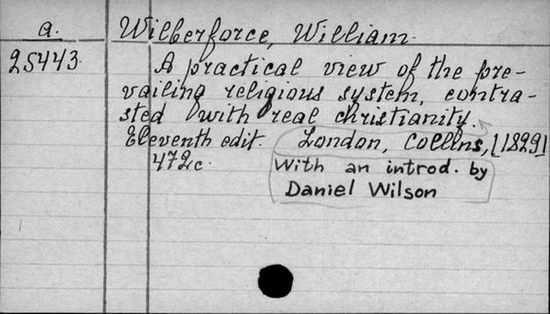 a. Wilberforce, William.
25443 A practical view of the pre-
vailing religious system, contra-
sted with real christianity.
Eleventh edit. London, Collins, [1829]
472c.
With an introd. by
Daniel Wilson